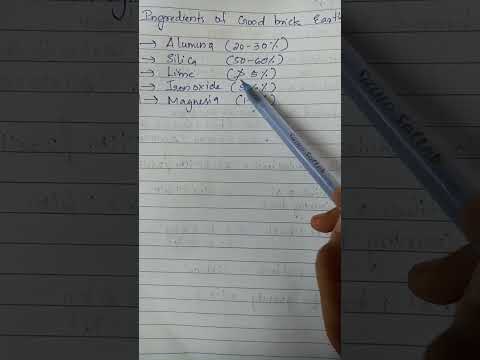 Ingredients of Good brick Earth
→ Alumina (20-30%)
→ Silica (50-60%)
→ Lime 5%)
→ Iron oxide
→ Magnesia